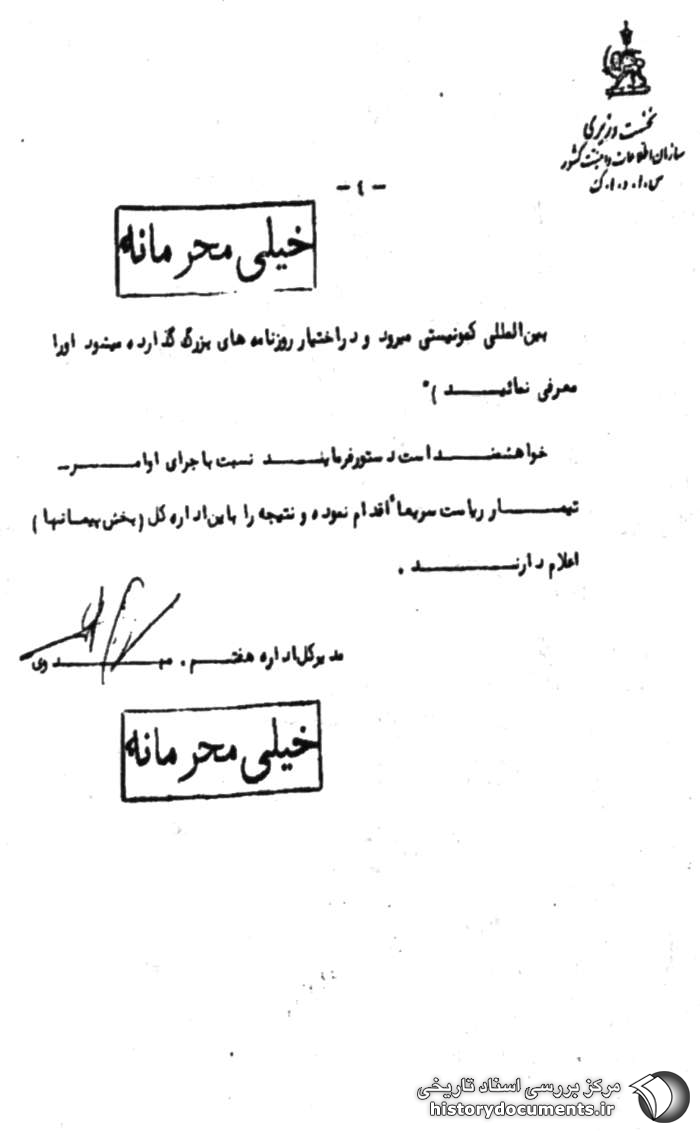 نخست وزیری
سازمان اطلاعات و امنیت کشور
س.ا.و.ا.ک
- ٤ -
خیلی محرمانه
بین‌المللی کمونیستی میرود و در اختیار روزنامه های بزرگ گذارده میشود اورا
معرفی نمائیـــد )"
خواهشمنـــداست دستورفرماینـــد نسبت باجرای اوامـــر ـ
تیمـــار ریاست سریعاً اقدام نموده و نتیجه را باین اداره کل (بخش پیمانها)
اعلام دارنـــد .
مدیرکل اداره هفتـــم . مهـــدوی
خیلی محرمانه
مرکز بررسی اسناد تاریخی
historydocuments.ir